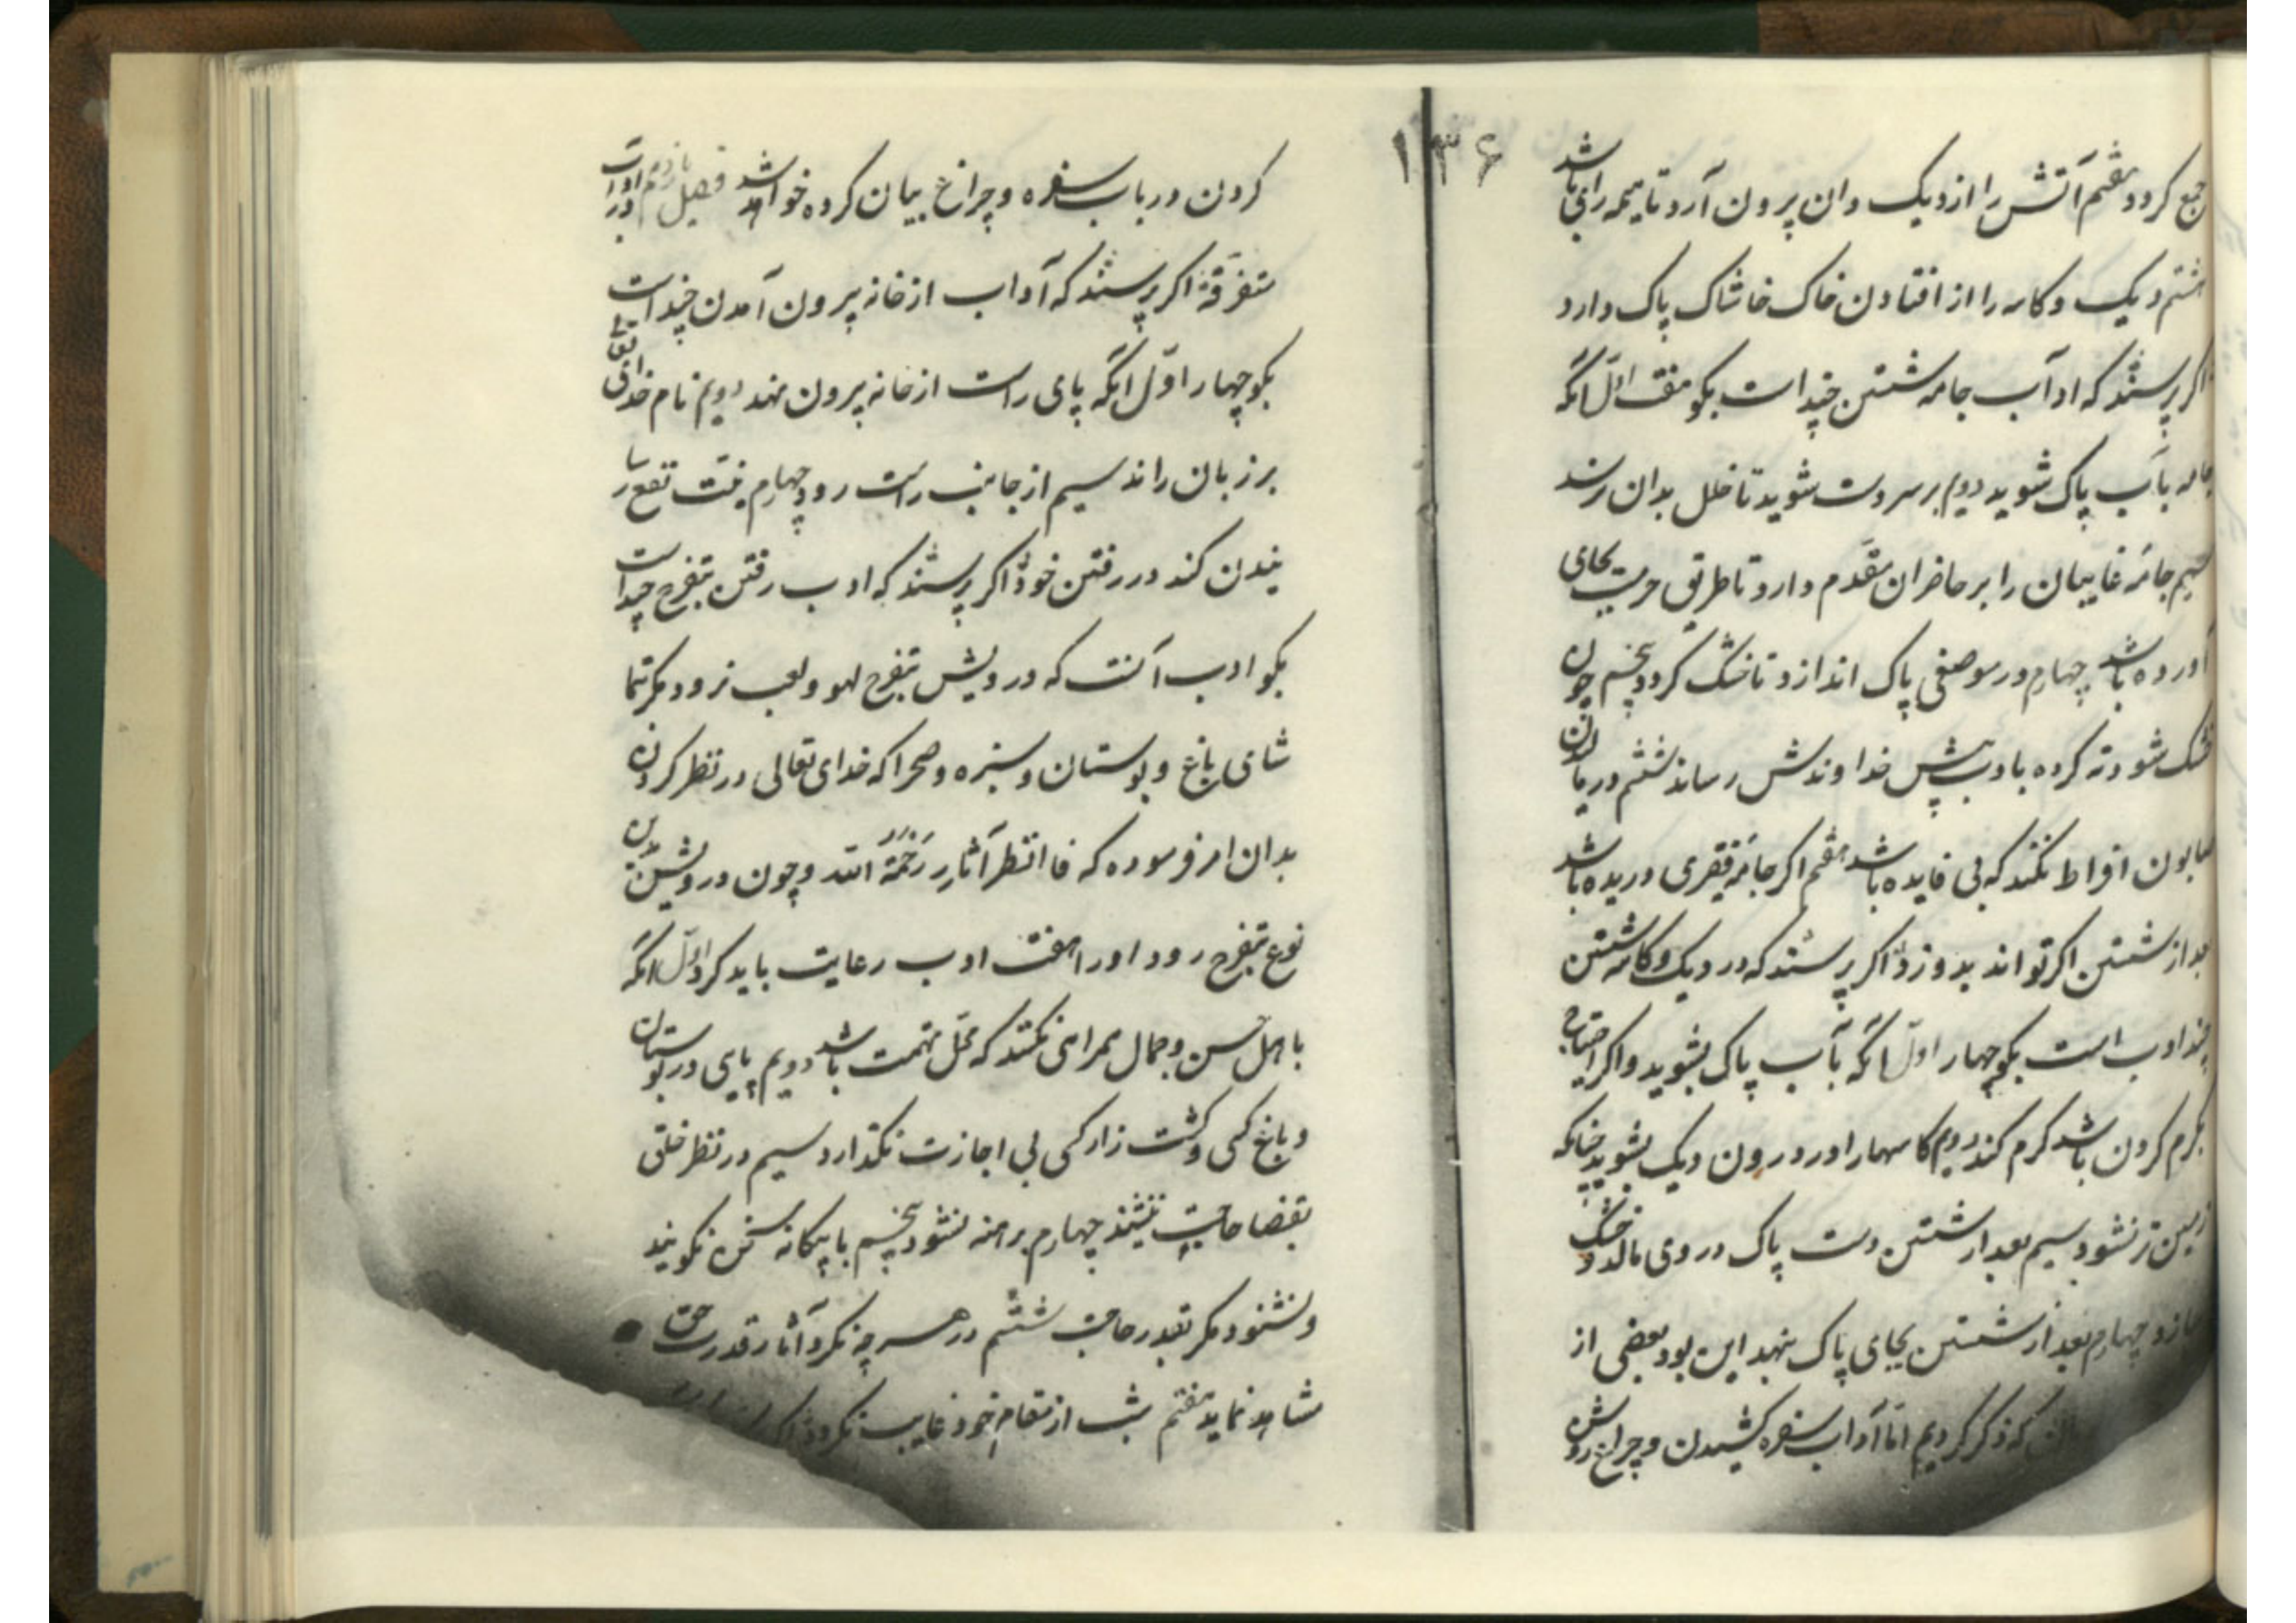 ۱۳۶
جمع کردد هفتم آتش را از دیک دان بیرون آرد تا همه رایی باشد
هشتم دیک و کاسه را از افتادن خاک خاشاک پاک دارد
اکر پرسند که اداب جامه شستن چند است بکو هفت اول آنکه
جامه بآب پاک شوید دویم بر سر دست شوید تا خلل بدان رسد
سیم جامهٔ غایبان را بر حاضران مقدم دارد تا طریق حرمت بجای
آورده باشد چهارم در موضعی پاک اندازد تا خشک کردد پنجم چون
خشک شود ته کرده بادب پیش خداوندش رساند ششم در مالیدن
صابون افراط نکند که بی فایده باشد هفتم اکر جامهٔ فقیری دریده باشد
بعد از شستن اکر تواند بدوزد اکر پرسند که در دیک و کاسه شستن
چند ادب است بکو چهار اول آنکه بآب پاک بشوید و اکر احتیاج
بکرم کردن باشد کرم کند دویم کاسها را در درون دیک بشوید چنانکه
زمین تر نشود سیم بعد از شستن دست پاک در وی مالد و خشک
سازد چهارم بعد از شستن بجای پاک بنهد این بود بعضی از
که ذکر کردیم اما آداب سفره کشیدن و چراغ روشن
کردن در باب سفره و چراغ بیان کرده خواهد شد فصل یازدهم در اداب
متفرقه اکر پرسند که آداب از خانه بیرون آمدن چند است
بکو چهار اول آنکه پای راست از خانه بیرون نهد دویم نام خدای تعالی
بر زبان راند سیم از جانب راست رود چهارم نیت نفع رسا
نیدن کند در رفتن خود اکر پرسند که ادب رفتن بتفرج چند است
بکو ادب آنست که درویش بتفرج لهو و لعب نرود مکر تما
شای باغ و بوستان و سبزه و صحرا که خدای تعالی در نظر کردن
بدان امر فرموده که فاانظر آثار رحمة الله و چون درویش بدین
نوع بتفرج رود او را هفت ادب رعایت باید کرد اول آنکه
با اهل حسن و جمال همراهی نکند که محل تهمت باشد دویم پای در بوستان
و باغ کسی و کشت زار کسی بی اجازت نکذارد سیم در نظر خلق
بقضا حاجت ننشیند چهارم برهنه نشود پنجم با بیکانه سخن نکویند
و نشنود مکر بقدر حاجت ششم در هر چه نکرد آثار قدرت حق
مشاهده نماید هفتم شب از مقام خود غایب نکردد اکر